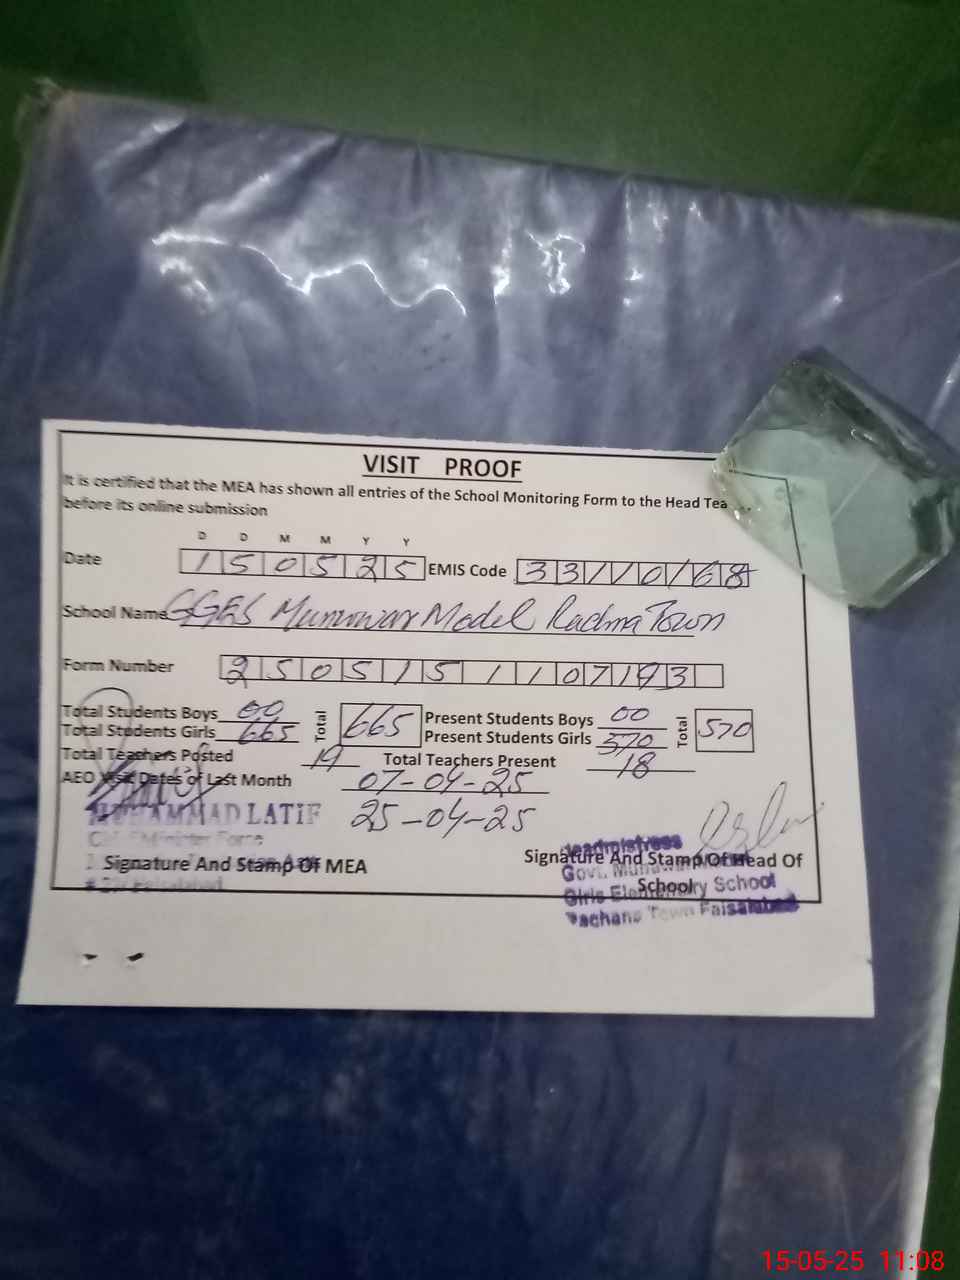 VISIT PROOF
It is certified that the MEA has shown all entries of the School Monitoring Form to the Head Tea
before its online submission
D D M M Y Y
Date 150525 EMIS Code 33110168
School Name GGES Munawar Model Rachna Town
Form Number 25051511071
Total Students Boys 00 Total 665 Present Students Boys 00 Total 570
Total Students Girls 665 Present Students Girls 570
Total Teachers Posted 19 Total Teachers Present 18
AEO Visit Dates of Last Month 07-04-25
25-04-25
MUHAMMAD LATIF
Signature And Stamp Of MEA
Signature And Stamp Of Head Of
School
Headmistress
Govt.
Girls Elementry School
Town Faisalabad
15-05-25 11:08